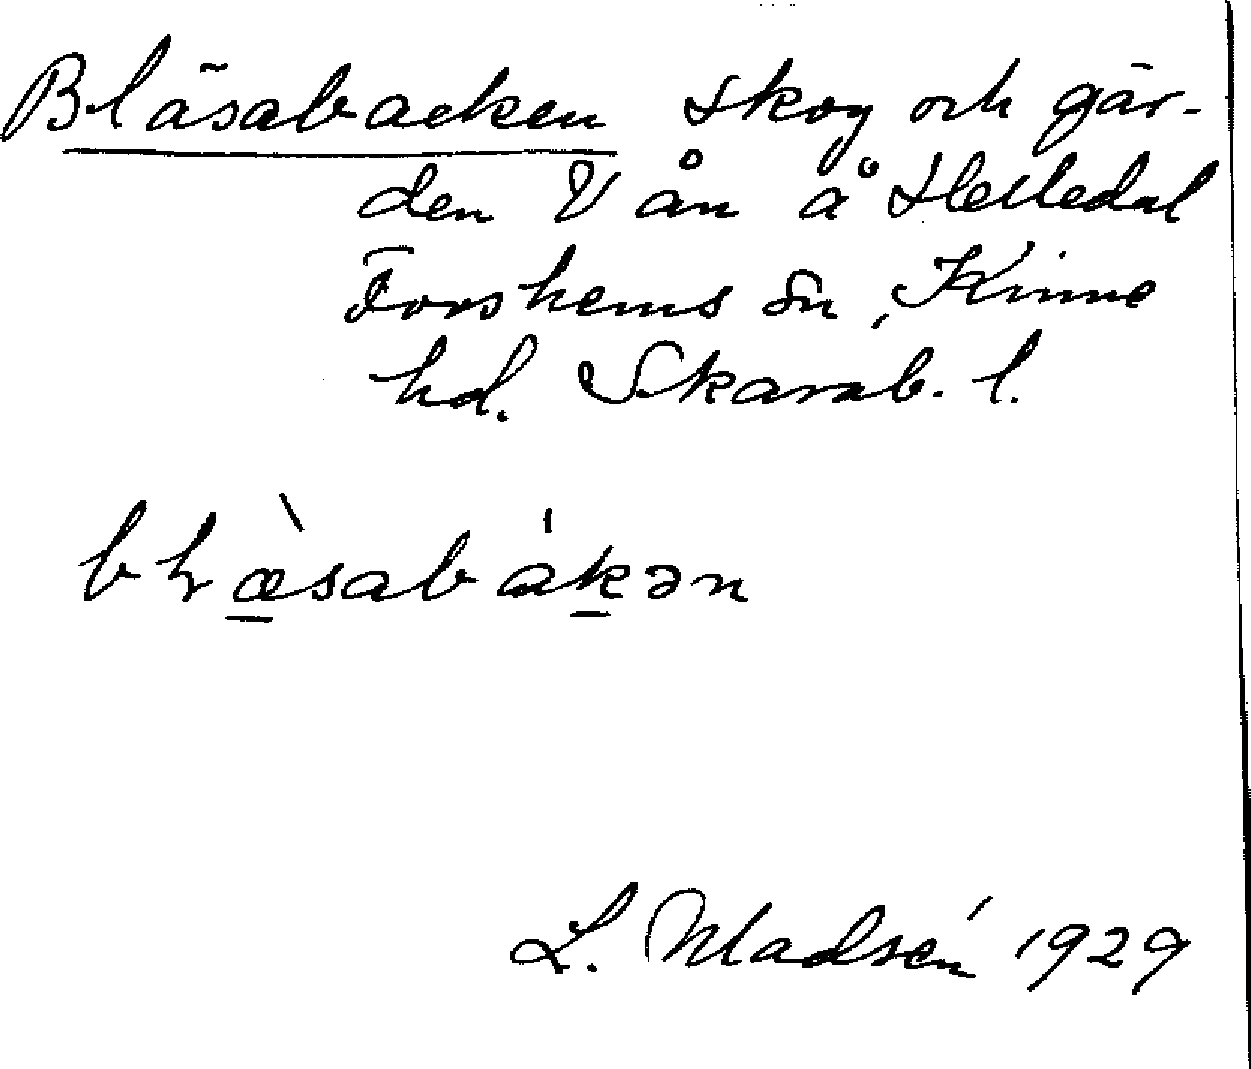 Bläsabacken skog och gär-
den V ån å Helledal
Forshems sn, Kinne
hd. Skarab. l.
bḷæ̀sabákən
L. Madsén 1929